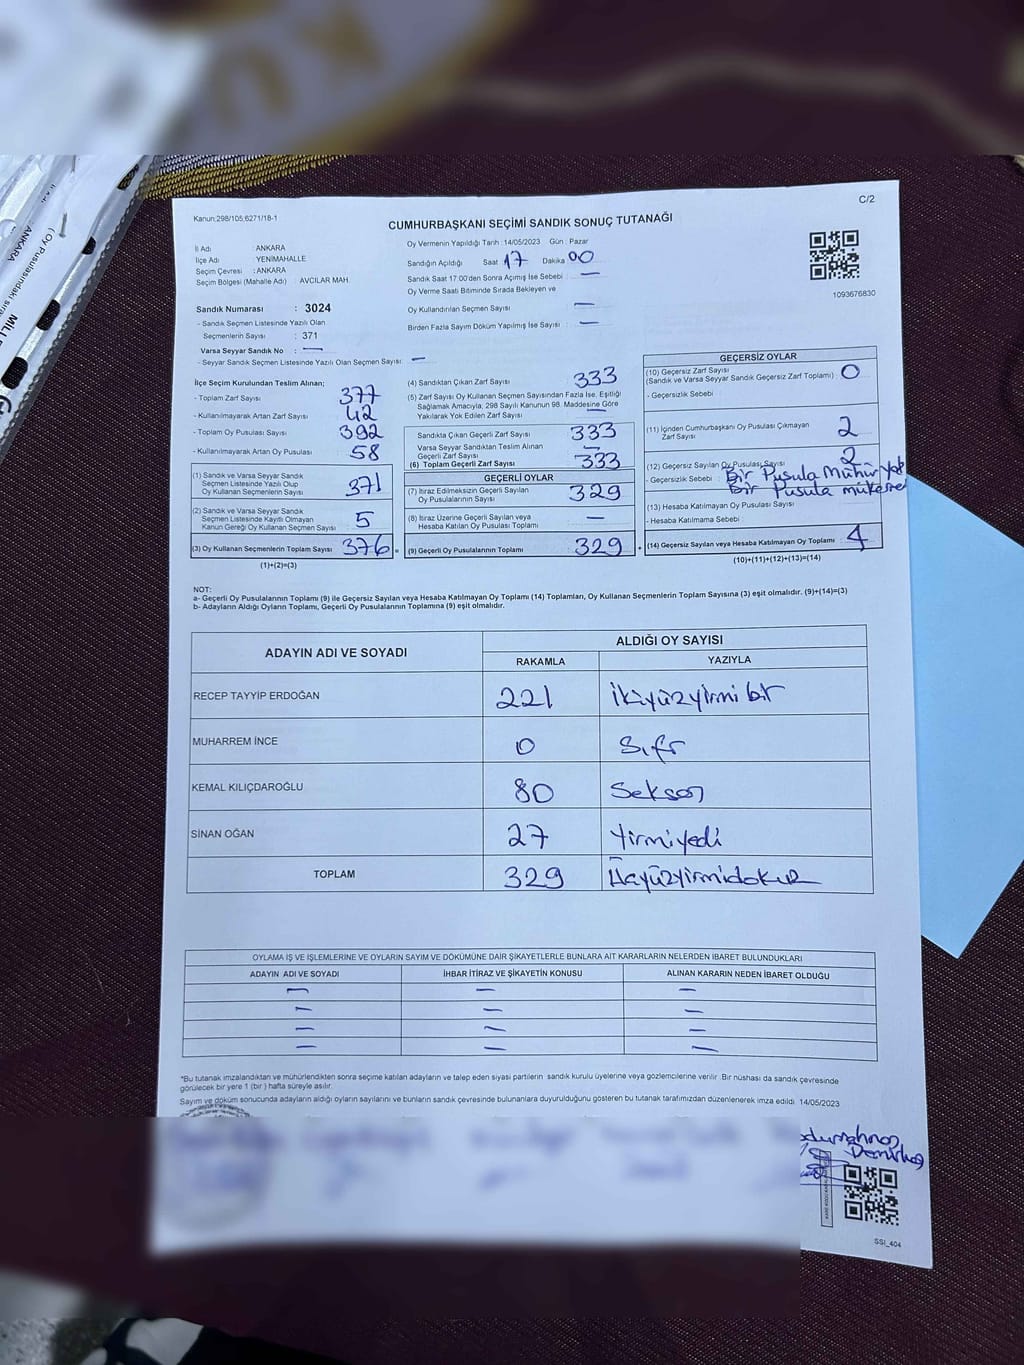 KU
C/2
Kanun:298/105;6271/18-1
CUMHURBAŞKANI SEÇİMİ SANDIK SONUÇ TUTANAĞI
İl Adı : ANKARA
İlçe Adı : YENİMAHALLE
Seçim Çevresi : ANKARA
Seçim Bölgesi (Mahalle Adı) : AVCILAR MAH.
Oy Vermenin Yapıldığı Tarih :14/05/2023 Gün : Pazar
Sandığın Açıldığı Saat 17 Dakika 00
Sandık Saat 17:00'den Sonra Açmış İse Sebebi : —
Oy Verme Saati Bitiminde Sırada Bekleyen ve
Oy Kullandırılan Seçmen Sayısı : —
Birden Fazla Sayım Döküm Yapılmış İse Sayısı : —
1093676830
Sandık Numarası : 3024
- Sandık Seçmen Listesinde Yazılı Olan
Seçmenlerin Sayısı : 371
Varsa Seyyar Sandık No : —
- Seyyar Sandık Seçmen Listesinde Yazılı Olan Seçmen Sayısı: —
İlçe Seçim Kurulundan Teslim Alınan;
- Toplam Zarf Sayısı 377
- Kullanılmayarak Artan Zarf Sayısı 42
- Toplam Oy Pusulası Sayısı 392
- Kullanılmayarak Artan Oy Pusulası 58
(1) Sandık ve Varsa Seyyar Sandık
Seçmen Listesinde Yazılı Olup
Oy Kullanan Seçmenlerin Sayısı 371
(2) Sandık ve Varsa Seyyar Sandık
Seçmen Listesinde Kayıtlı Olmayan
Kanun Gereği Oy Kullanan Seçmen Sayısı 5
(3) Oy Kullanan Seçmenlerin Toplam Sayısı 376 =
(1)+(2)=(3)
(4) Sandıktan Çıkan Zarf Sayısı 333
(5) Zarf Sayısı Oy Kullanan Seçmen Sayısından Fazla İse, Eşitliği
Sağlamak Amacıyla; 298 Sayılı Kanunun 98. Maddesine Göre
Yakılarak Yok Edilen Zarf Sayısı —
Sandıkta Çıkan Geçerli Zarf Sayısı 333
Varsa Seyyar Sandıktan Teslim Alınan
Geçerli Zarf Sayısı —
(6) Toplam Geçerli Zarf Sayısı 333
GEÇERLİ OYLAR
(7) İtiraz Edilmeksizin Geçerli Sayılan
Oy Pusulalarının Sayısı 329
(8) İtiraz Üzerine Geçerli Sayılan veya
Hesaba Katılan Oy Pusulası Toplamı —
(9) Geçerli Oy Pusulalarının Toplamı 329 +
GEÇERSİZ OYLAR
(10) Geçersiz Zarf Sayısı
(Sandık ve Varsa Seyyar Sandık Geçersiz Zarf Toplamı) 0
- Geçersizlik Sebebi
(11) İçinden Cumhurbaşkanı Oy Pusulası Çıkmayan
Zarf Sayısı 2
(12) Geçersiz Sayılan Oy Pusulası Sayısı 2
- Geçersizlik Sebebi Bir Pusula Mühür Yok
Bir Pusula mükerrer
(13) Hesaba Katılmayan Oy Pusulası Sayısı
- Hesaba Katılmama Sebebi
(14) Geçersiz Sayılan veya Hesaba Katılmayan Oy Toplamı 4
(10)+(11)+(12)+(13)=(14)
NOT:
a- Geçerli Oy Pusulalarının Toplamı (9) ile Geçersiz Sayılan veya Hesaba Katılmayan Oy Toplamı (14) Toplamları, Oy Kullanan Seçmenlerin Toplam Sayısına (3) eşit olmalıdır. (9)+(14)=(3)
b- Adayların Aldığı Oyların Toplamı, Geçerli Oy Pusulalarının Toplamına (9) eşit olmalıdır.
ADAYIN ADI VE SOYADI
ALDIĞI OY SAYISI
RAKAMLA YAZIYLA
RECEP TAYYİP ERDOĞAN 221 İkiyüzyirmi bir
MUHARREM İNCE 0 Sıfır
KEMAL KILIÇDAROĞLU 80 Seksen
SİNAN OĞAN 27 Yirmiyedi
TOPLAM 329 Üçyüzyirmidokuz
OYLAMA İŞ VE İŞLEMLERİNE VE OYLARIN SAYIM VE DÖKÜMÜNE DAİR ŞİKAYETLERLE BUNLARA AİT KARARLARIN NELERDEN İBARET BULUNDUKLARI
ADAYIN ADI VE SOYADI İHBAR İTİRAZ VE ŞİKAYETİN KONUSU ALINAN KARARIN NEDEN İBARET OLDUĞU
— — —
— — —
— — —
— — —
*Bu tutanak imzalandıktan ve mühürlendikten sonra seçime katılan adayların ve talep eden siyasi partilerin sandık kurulu üyelerine veya gözlemcilerine verilir. Bir nüshası da sandık çevresinde
görülecek bir yere 1 (bir) hafta süreyle asılır.
Sayım ve döküm sonucunda adayların aldığı oyların sayılarını ve bunların sandık çevresinde bulunanlara duyurulduğunu gösteren bu tutanak tarafımızdan düzenlenerek imza edildi. 14/05/2023
SSI_404